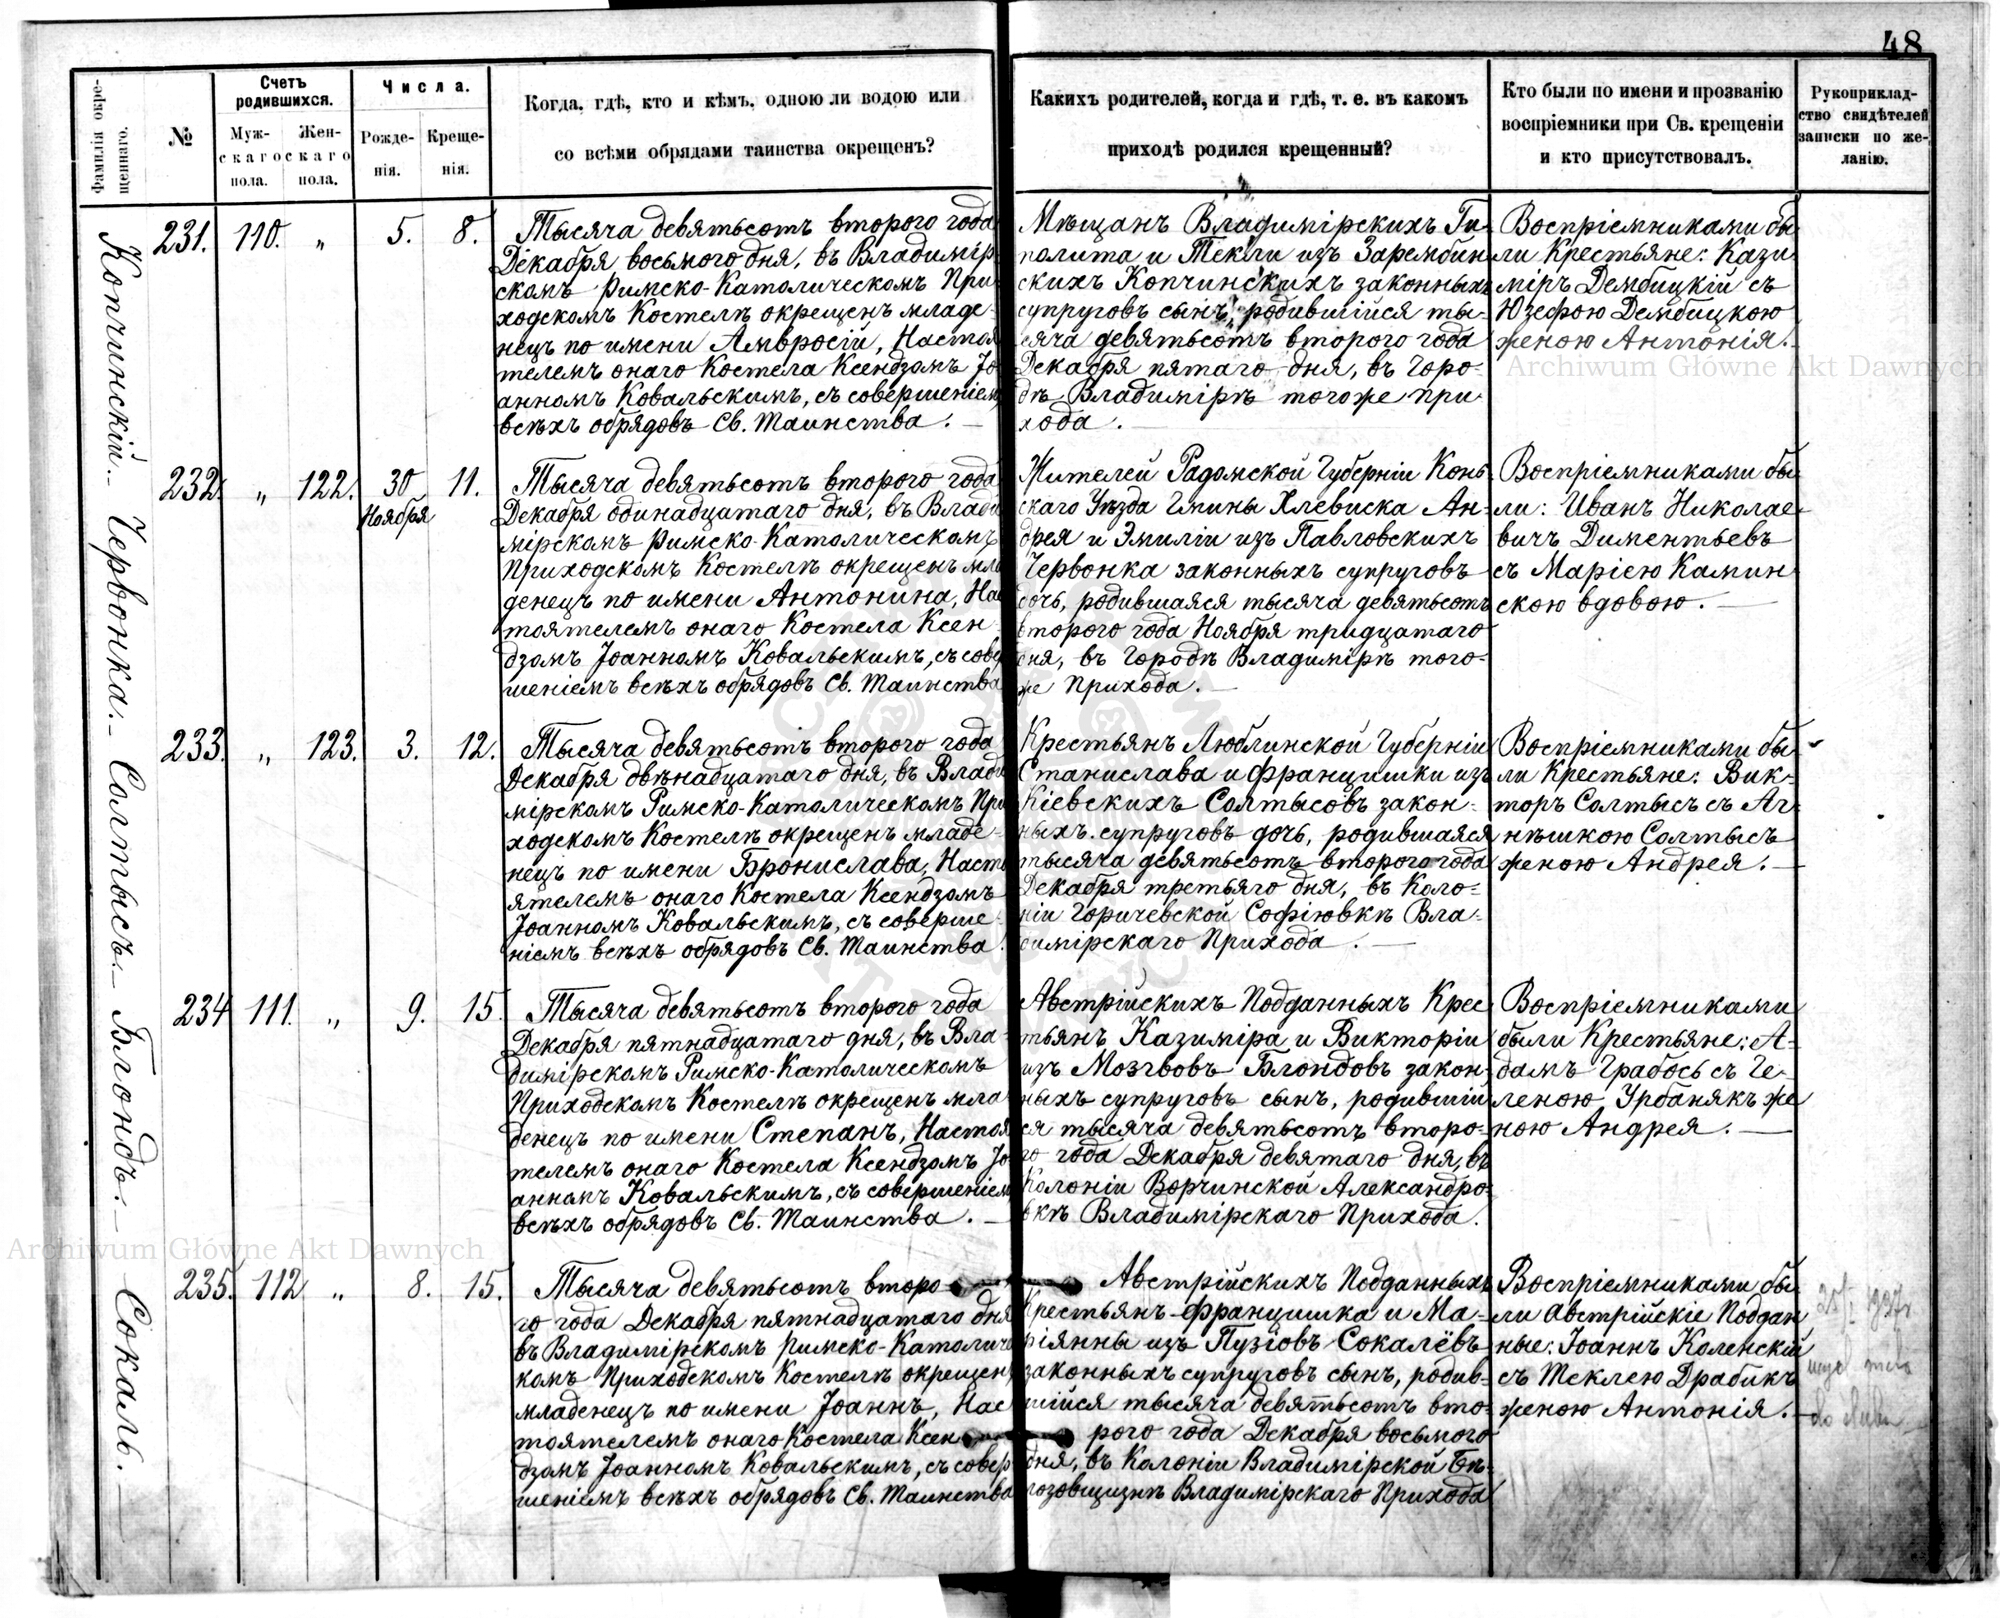 48
Фамилія окре-
щеннаго.
№
Счетъ
родившихся.
Муж-
скаго
пола.
Жен-
скаго
пола.
Числа.
Рожде-
нія.
Креще-
нія.
Когда, гдѣ, кто и кѣмъ, одною ли водою или
со всѣми обрядами таинства окрещенъ?
Какихъ родителей, когда и гдѣ, т. е. въ какомъ
приходѣ родился крещенный?
Кто были по имени и прозванію
воспріемники при Св. крещеніи
и кто присутствовалъ.
Рукоприклад-
ство свидѣтелей
записки по же-
ланію.
Копчинскій.
231. 110. „ 5. 8.
Тысяча девятьсотъ второго года
Декабря восьмого дня, въ Владимір-
скомъ Римско-Католическомъ При-
ходскомъ Костелѣ окрещенъ младе-
нецъ по имени Амвросій, Настоя
телемъ онаго Костела Ксендзомъ Іо
анномъ Ковальскимъ, съ совершеніемъ
всѣхъ обрядовъ Св. Таинства. —
Мѣщанъ Владимірскихъ Ги-
полита и Текли изъ Зарембин
скихъ Копчинскихъ законныхъ
супруговъ сынъ, родившійся ты-
сяча девятьсотъ второго года
Декабря пятаго дня, въ Горо-
дѣ Владимірѣ тогоже при-
хода. —
Воспріемниками бы
ли Крестьяне: Кази
міръ Дембицкій съ
Юзефою Дембицкою
женою Антонія. —
Червонка. —
232. „ 122. 30 11.
Ноября
Тысяча девятьсотъ второго года
Декабря одинадцатаго дня, въ Влади
мірскомъ Римско-Католическомъ
Приходскомъ Костелѣ окрещенъ мла
денецъ по имени Антонина, Нас
тоятелемъ онаго Костела Ксен-
дзомъ Іоанномъ Ковальскимъ, съ совер
шеніемъ всѣхъ обрядовъ Св. Таинства
Жителей Радомской Губерніи Конь-
скаго Уѣзда Гмины Хлевиска Ан-
дрея и Эмиліи изъ Павловскихъ
Червонка законныхъ супруговъ
дочь, родившаяся тысяча девятьсотъ
второго года Ноября тридцатаго
дня, въ Городѣ Владимірѣ того-
же Прихода. —
Воспріемниками бы-
ли: Иванъ Николае-
вичъ Диментьевъ
съ Маріею Камин
скою вдовою. —
Солтысъ. —
233. „ 123. 3. 12.
Тысяча девятьсотъ второго года
Декабря двѣнадцатаго дня, въ Влади
мірскомъ Римско-Католическомъ При
ходскомъ Костелѣ окрещенъ младе-
нецъ по имени Бронислава, Насто
ятелемъ онаго Костела Ксендзомъ
Іоанномъ Ковальскимъ, съ соверше-
ніемъ всѣхъ обрядовъ Св. Таинства.
Крестьянъ Люблинской Губерніи
Станислава и Францишки изъ
Кіевскихъ Солтысовъ закон-
ныхъ супруговъ дочь, родившаяся
тысяча девятьсотъ второго года
Декабря третьяго дня, въ Коло-
ніи Горичевской Софіювкѣ Вла-
димірскаго Прихода. —
Воспріемниками бы-
ли Крестьяне: Вик-
торъ Солтысъ съ Аг-
нѣшкою Солтысъ
женою Андрея. —
Блондъ. —
234 111. „ 9. 15.
Тысяча девятьсотъ второго года
Декабря пятнадцатаго дня, въ Вла-
димірскомъ Римско-Католическомъ
Приходскомъ Костелѣ окрещенъ мла
денецъ по имени Степанъ, Настоя
телемъ онаго Костела Ксендзомъ Іо
анномъ Ковальскимъ, съ совершеніемъ
всѣхъ обрядовъ Св. Таинства. —
Австрійскихъ Подданныхъ Крес
тьянъ Казиміра и Викторіи
изъ Мозгвовъ Блондовъ закон-
ныхъ супруговъ сынъ, родившій
ся тысяча девятьсотъ второ-
го года Декабря девятаго дня, въ
Колоніи Ворчинской Александро-
вкѣ Владимірскаго Прихода.
Воспріемниками
были Крестьяне: А-
дамъ Грабосъ съ Ге-
леною Урбанякъ же
ною Андрея. —
Сокаль. —
235. 112 „ 8. 15.
Тысяча девятьсотъ второ-
го года Декабря пятнадцатаго дня
въ Владимірскомъ Римско-Католичес
комъ Приходскомъ Костелѣ окрещенъ
младенецъ по имени Іоаннъ, Нас
тоятелемъ онаго Костела Ксен
дзомъ Іоанномъ Ковальскимъ, съ совер
шеніемъ всѣхъ обрядовъ Св. Таинства
Австрійскихъ Подданныхъ
Крестьянъ Францишка и Ма-
ріянны изъ Пузіовъ Сокалёвъ
законныхъ супруговъ сынъ, родив-
шійся тысяча девятьсотъ вто-
рого года Декабря восьмого
дня, въ Колоніи Владимірской Бѣ-
лозовщизнѣ Владимірскаго Прихода
Воспріемниками бы
ли Австрійскіе Поддан
ные: Іоаннъ Коленскій
съ Теклею Драбикъ
женою Антонія. —
Archiwum Główne Akt Dawnych
Archiwum Główne Akt Dawnych